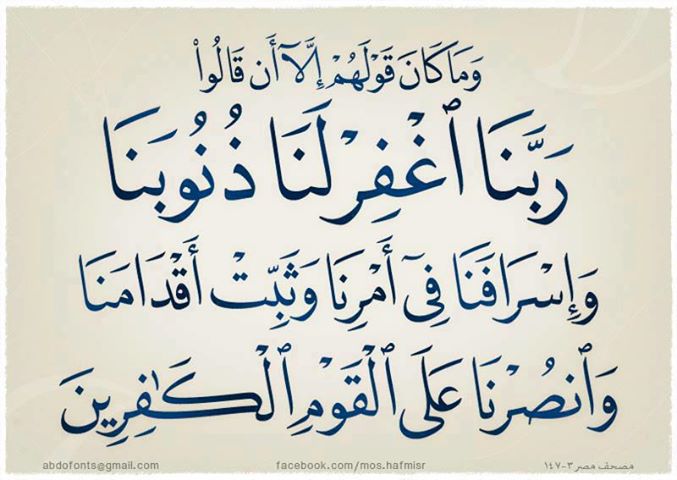 وَمَا كَانَ قَوْلَهُمْ إِلَّآ أَن قَالُوا۟
رَبَّنَا ٱغْفِرْ لَنَا ذُنُوبَنَا
وَإِسْرَافَنَا فِىٓ أَمْرِنَا وَثَبِّتْ أَقْدَامَنَا
وَٱنصُرْنَا عَلَى ٱلْقَوْمِ ٱلْكَـٰفِرِينَ
abdofonts@gmail.com facebook.com/mos.hafmisr مصحف مصر ٣-١٤٧